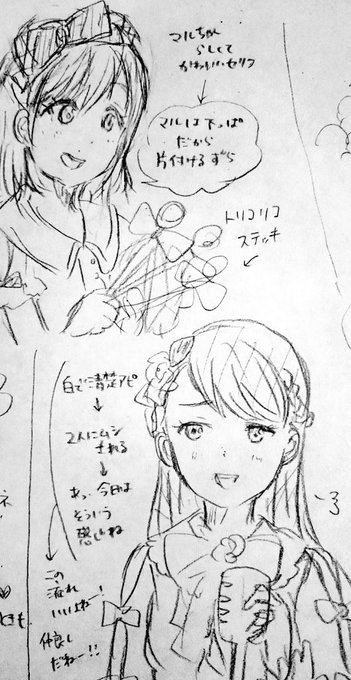 マルちゃん
らしくて
かわいいセリフ
マルは下っぱ
だから
片付けるずら
トリコリコ
ステッキ
白で清楚アピ
2人にムシ
される
あっ、今日は
そういう
感じね
この
流れ
いいよねー!
仲良し
だねー!!